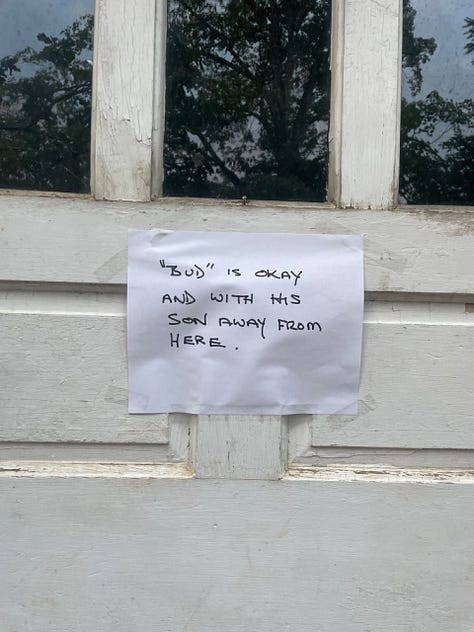 "BUD" IS OKAY
AND WITH HIS
SON AWAY FROM
HERE.